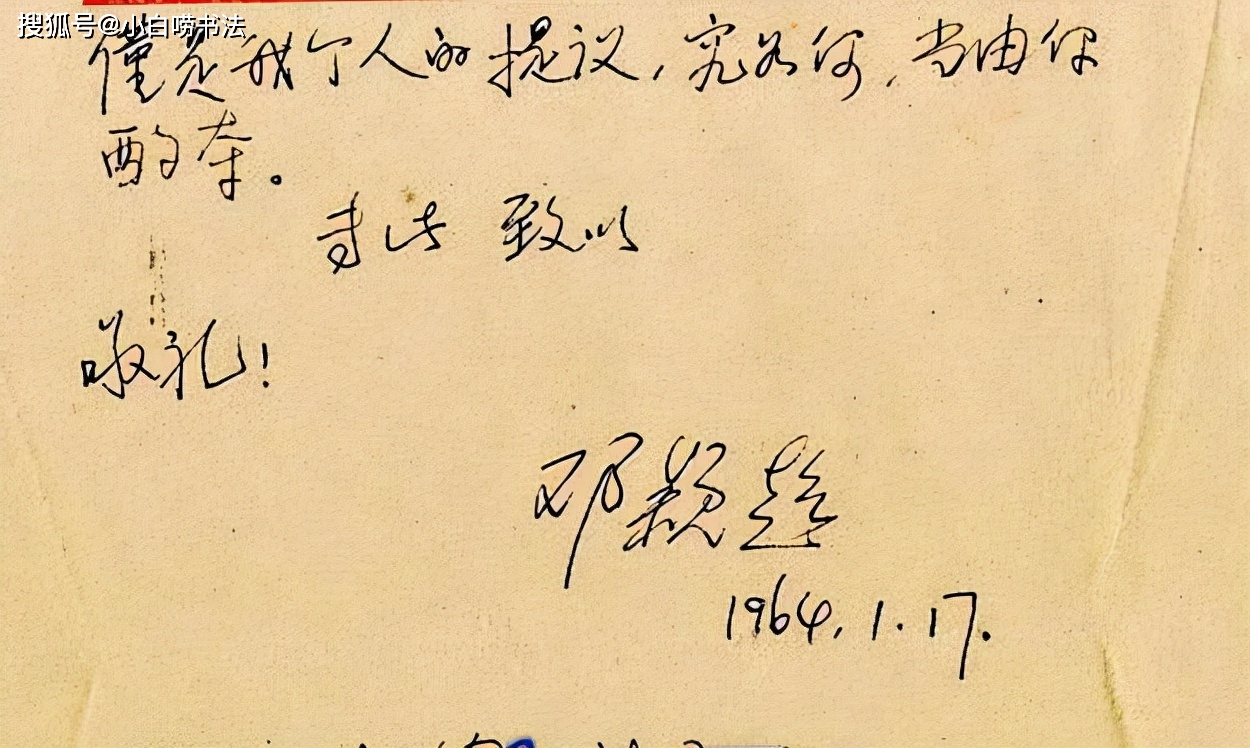 搜狐号@小白唠书法
僅是我个人的提议，究如何，当由你
酌夺。
专此 致以
敬礼！
邓颖超
1964.1.17.